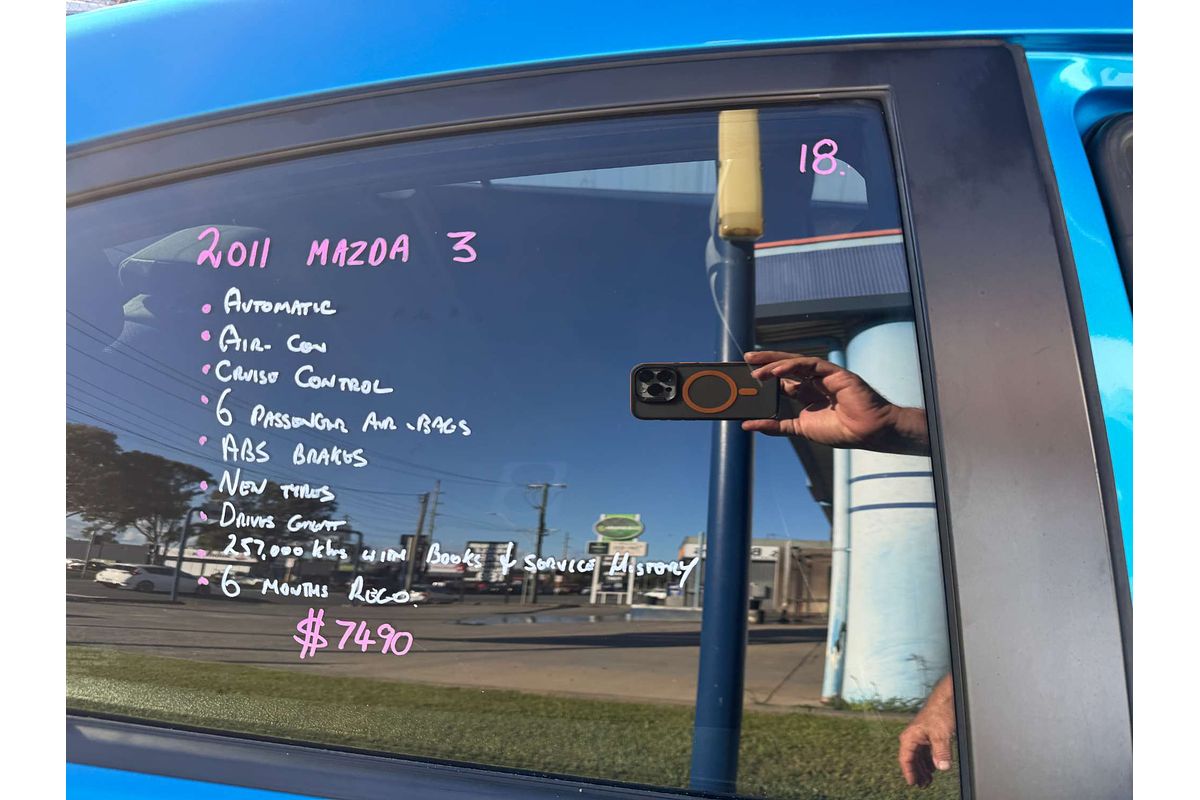 18.
2011 MAZDA 3
• AUTOMATIC
• AIR-CON
• CRUISE CONTROL
• 6 PASSENGER AIR-BAGS
• ABS BRAKES
• NEW TYRES
• DRIVES GREAT
• 257,000 kms WITH BOOKS & SERVICE HISTORY
• 6 MONTHS REGO.
$7490